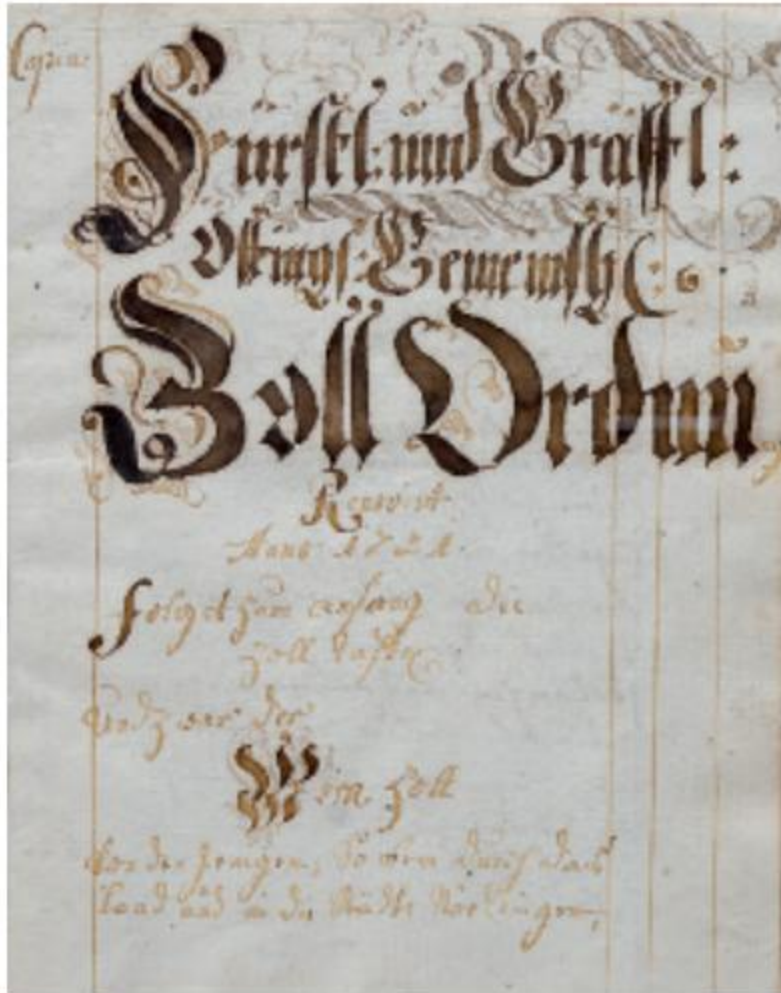 Copia
Fürstl: und Gräffl:
Öttings: Gemeinsch:
Zoll Ordnun
Renovirt
Anno 1721.
Folgt zum anfang die
Zoll
Und zwar der
Wein Zoll
Von den jenigen, so durch das
Land und in die Stadt Nörlingen,